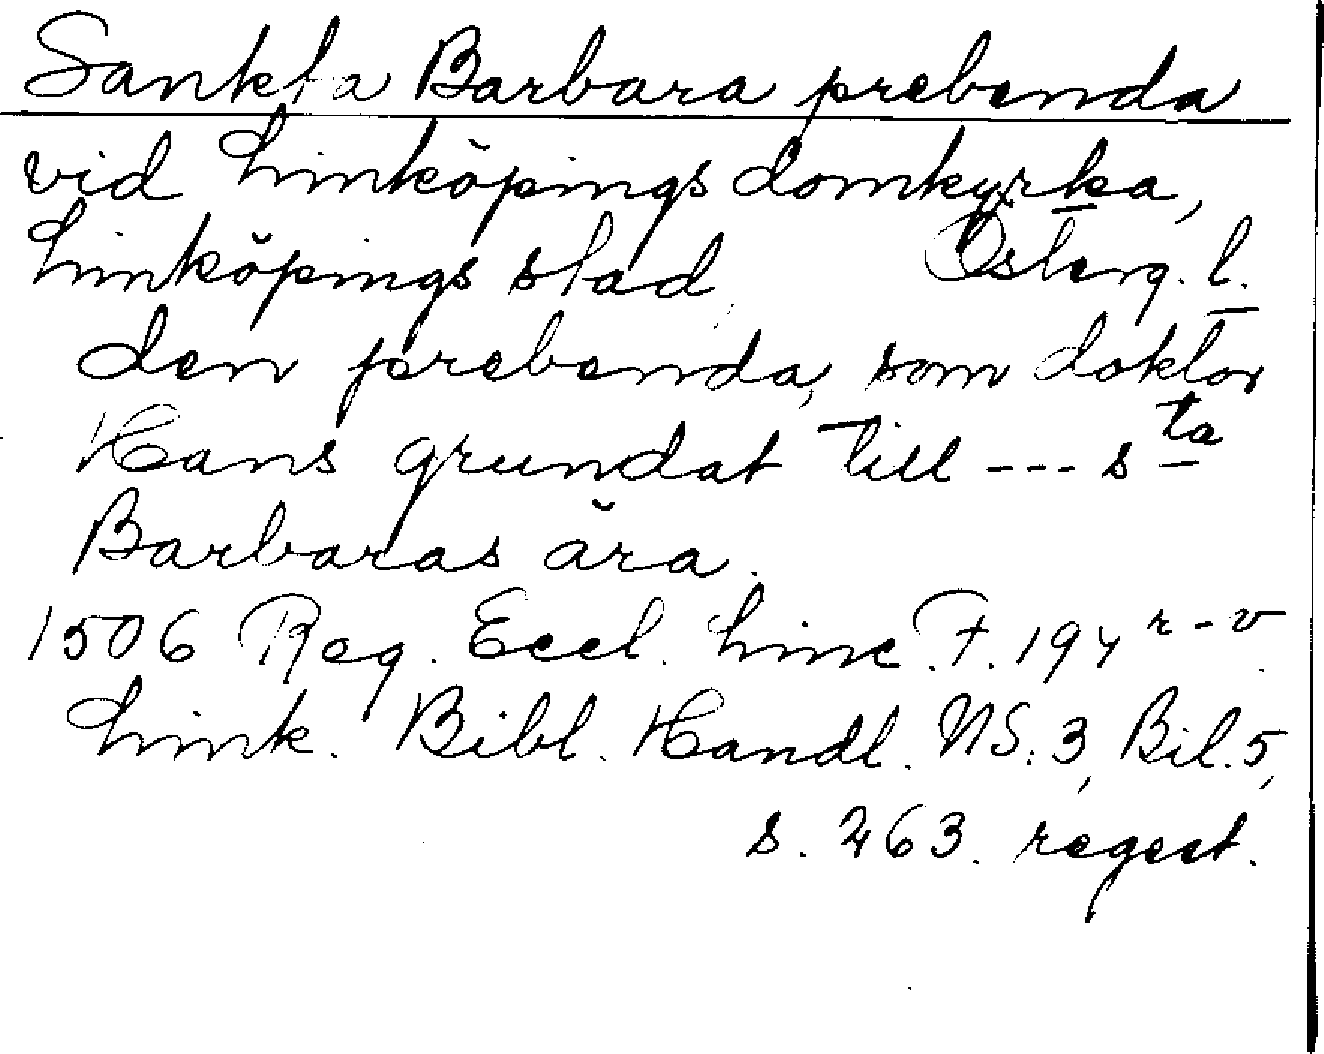 Sankta Barbara prebenda
vid Linköpings domkyrka,
Linköpings stad, Österg. l.
den prebenda, som doktor
Hans grundat till --- s ta
Barbaras ära.
1506 Reg. Eccl. Linc. F. 194 r-v.
Link. Bibl. Handl. NS: 3, Bil. 5,
s. 263. regest.